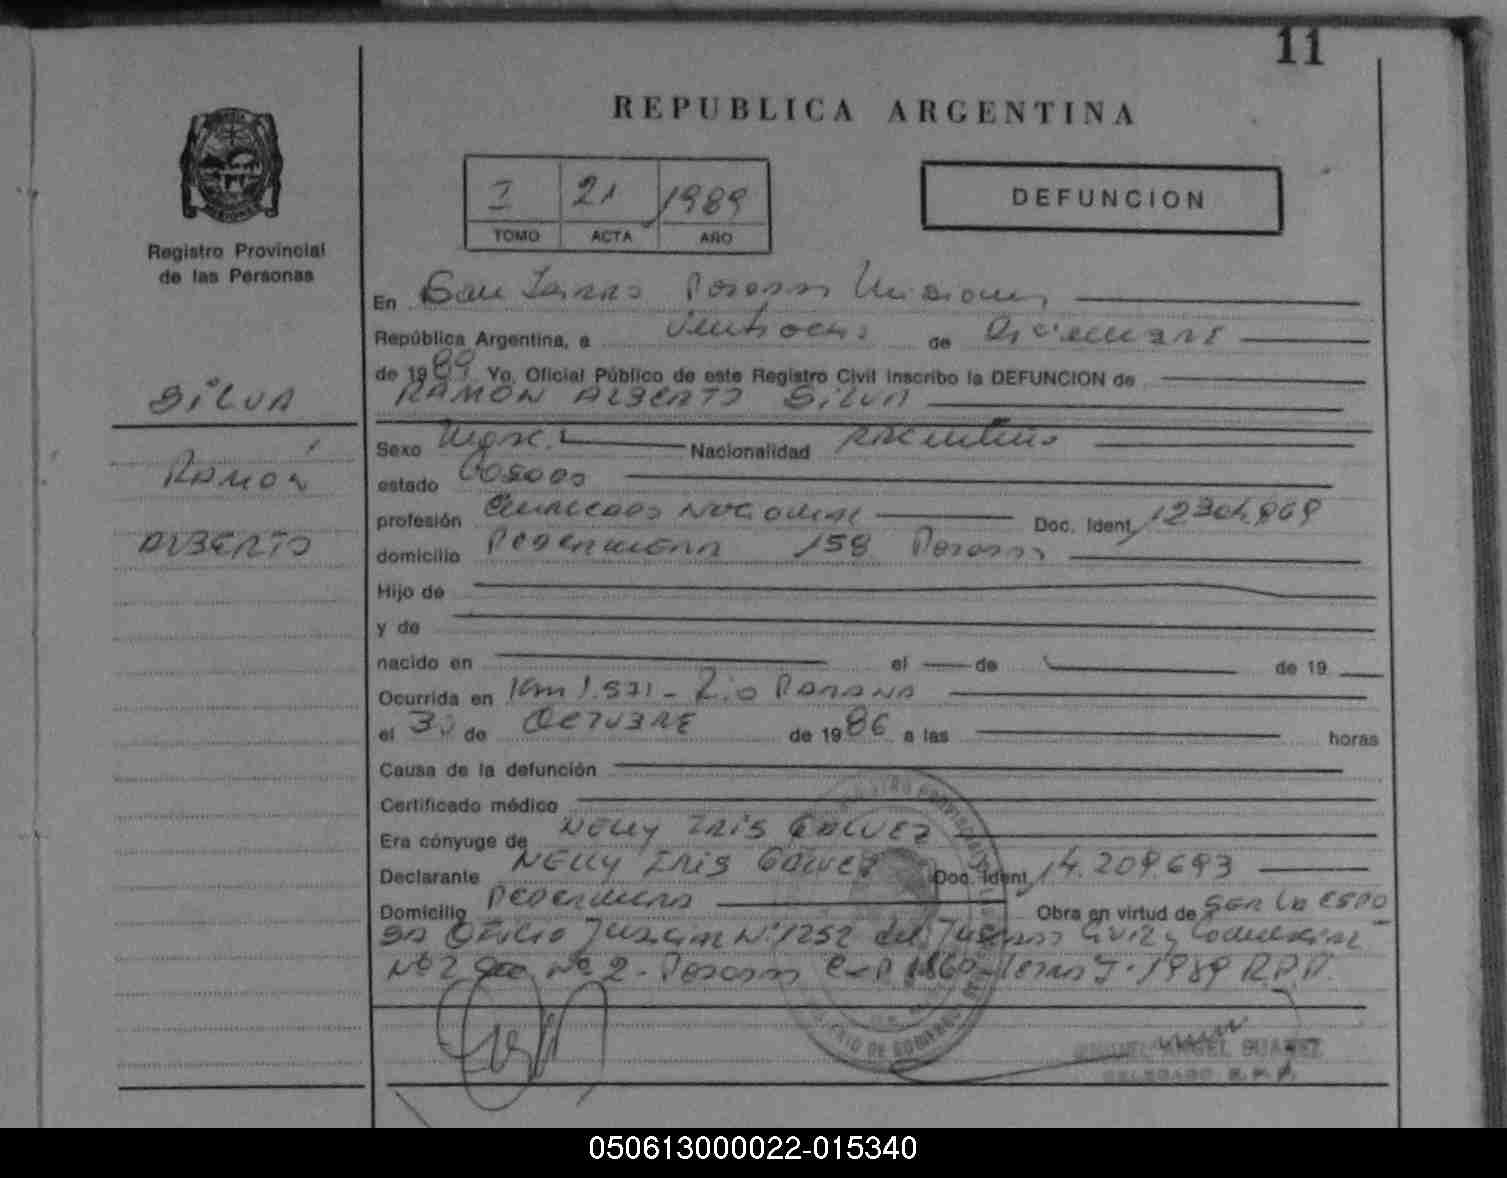 11
REPUBLICA ARGENTINA
I 21 1989
TOMO ACTA AÑO
DEFUNCION
Registro Provincial
de las Personas
SILVA
RAMÓN
ALBERTO
En San Posadas Misiones
República Argentina, a veintiocho de
de 1989 Yo, Oficial Público de este Registro Civil inscribo la DEFUNCION de
RAMON ALBERTO SILVA
Sexo Masc. Nacionalidad Argentino
estado Casado
profesión Empleado Nacional Doc. Ident. 12304.869
domicilio Pedermera 158 Posadas
Hijo de
y de
nacido en el de de 19
Ocurrida en Km 1.571 - Rio Parana
el 30 de OCTUBRE de 1986 a las horas
Causa de la defunción
Certificado médico
Era cónyuge de NELLY IRIS GALVEZ
Declarante NELLY IRIS GALVEZ Doc. Ident. 14.209.693
Domicilio Pedermera Obra en virtud de
Oficio Judicial Nº 1252 del Juzgado Civil y Comercial
Nº 2 Sec. Nº 2 - Posadas Exp. 1860 1989 R.P.P.
MIGUEL ANGEL SUAREZ
DELEGADO R.P.P.
050613000022-015340